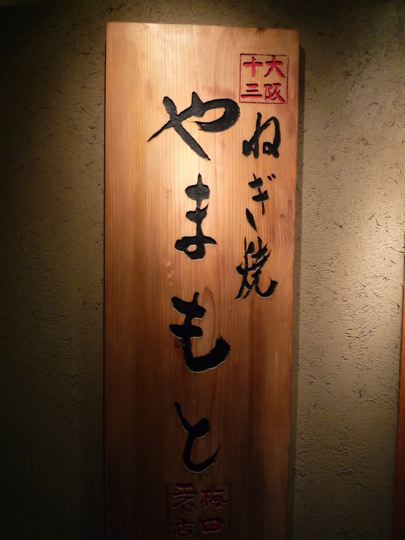 大阪
十三
ねぎ焼
やまもと
梅田